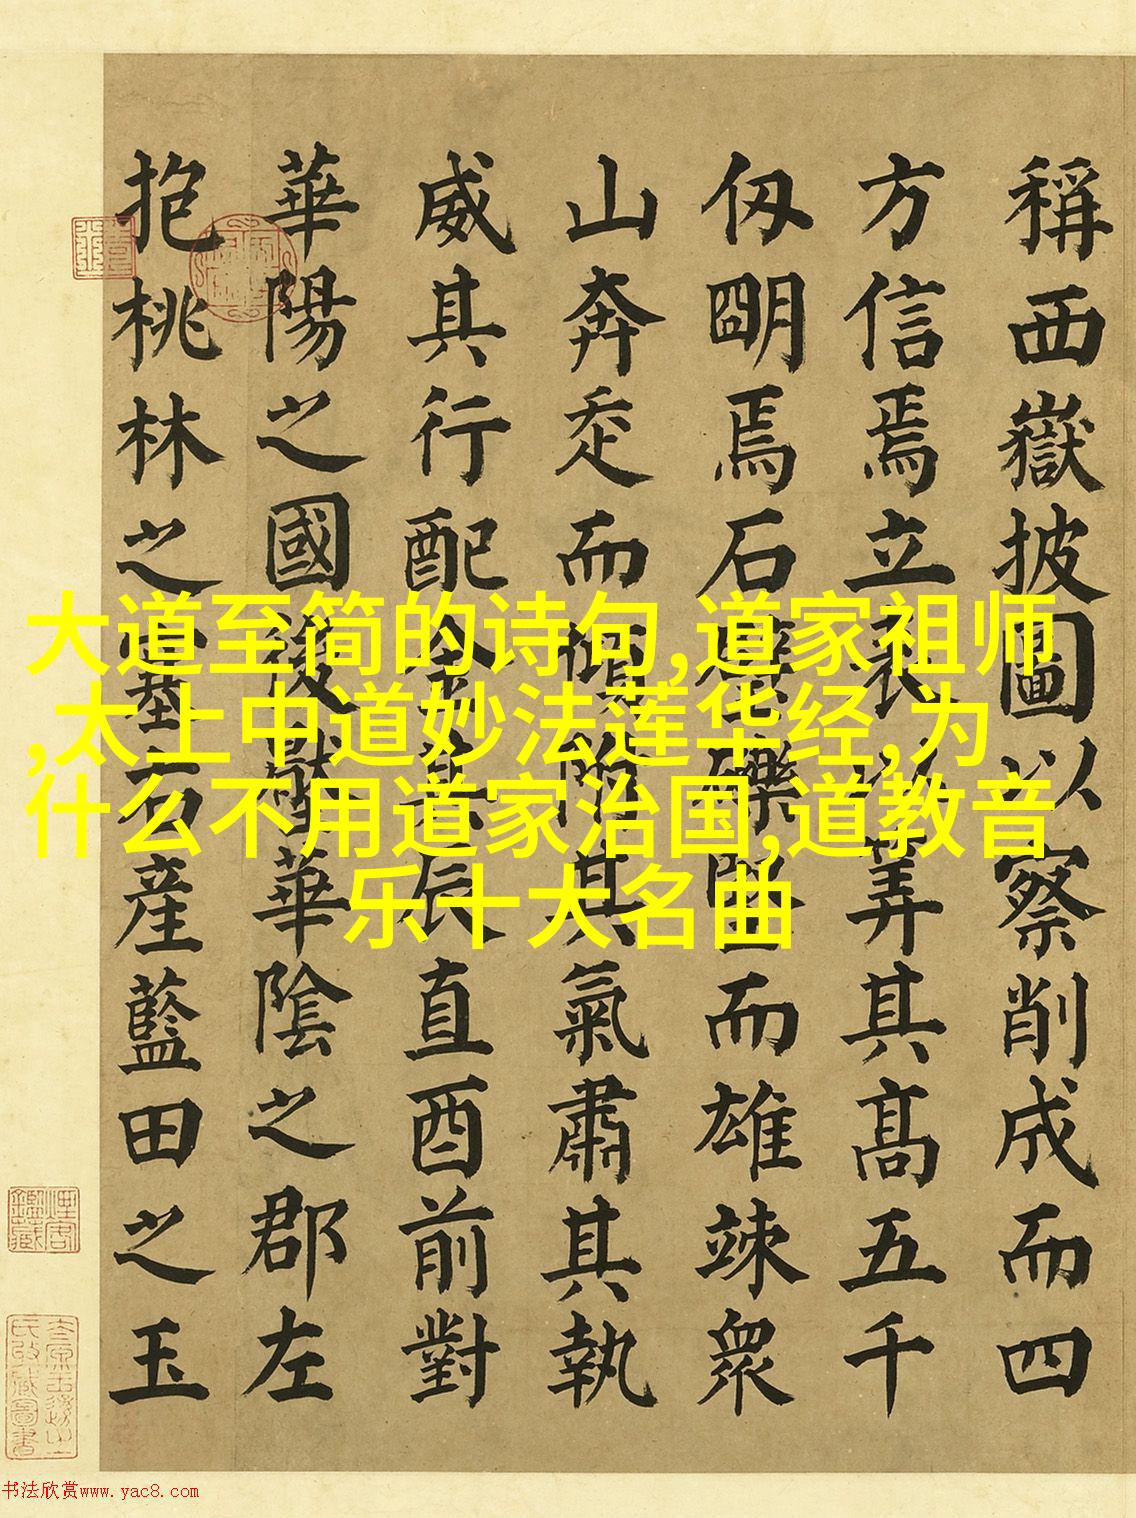 稱西嶽披圖以察削成而四
方信焉立表以筭其髙五千
仭朙焉石壁礫堅而雄竦衆
山奔走而傾附其氣肅其執
威其行配金其辰直酉前對
華陽之國後壓華陰之郡左
抱桃林之塞右產藍田之玉
大道至简的诗句,道家祖师
,太上中道妙法莲华经,为
什么不用道家治国,道教音
乐十大名曲
书法欣赏www.yac8.com